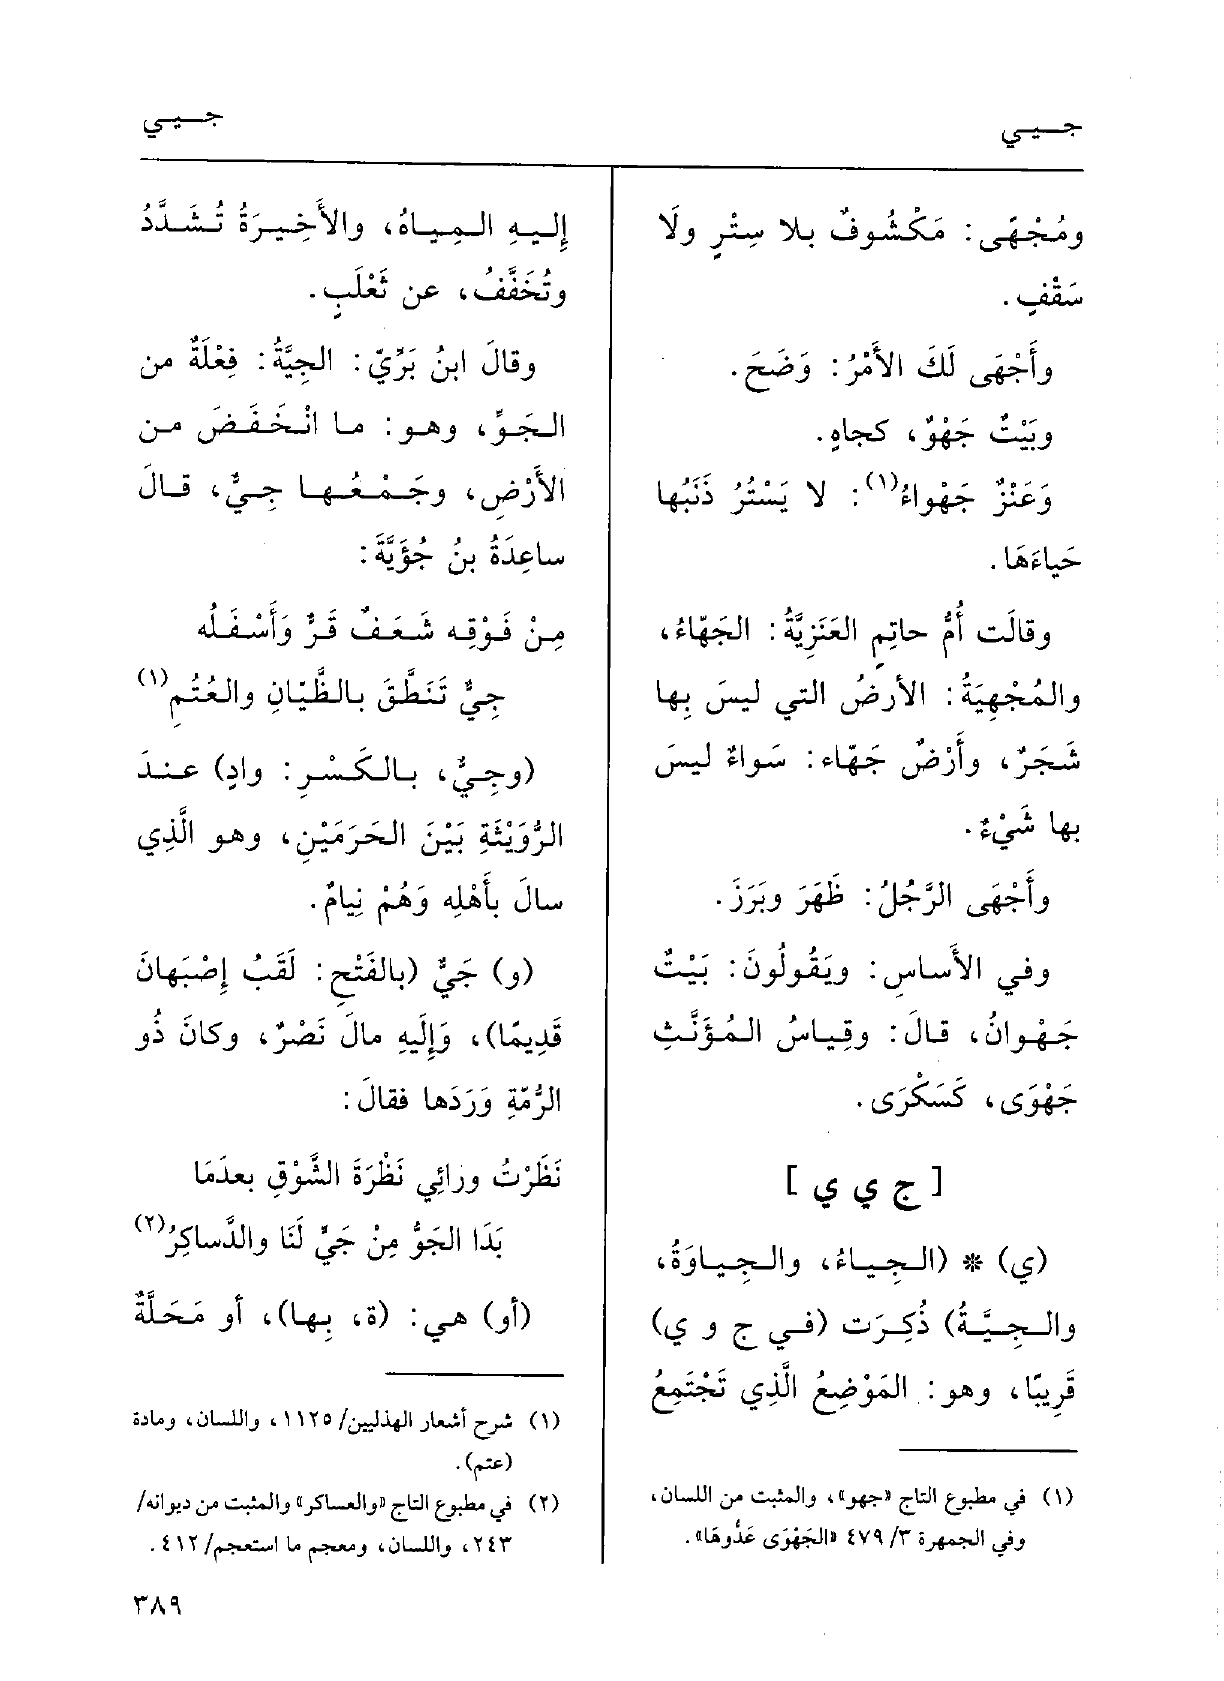 جيي
جيي
ومُجْهًى: مَكْشُوفٌ بلا سِتْرٍ ولَا
سَقْفٍ.
وأَجْهَى لَكَ الأَمْرُ: وَضَحَ.
وبَيْتٌ جَهْوٌ، كجاهٍ.
وَعَنْزٌ جَهْواءُ(١): لا يَسْتُرُ ذَنَبُها
حَياءَهَا.
وقالَت أُمُّ حاتِمٍ العَنَزِيَّةُ: الجَهّاءُ،
والمُجْهِيَةُ: الأرضُ التي ليسَ بِها
شَجَرٌ، وأَرْضٌ جَهّاء: سَواءٌ ليسَ
بها شَيْءٌ.
وأَجْهَى الرَّجُلُ: ظَهَرَ وبَرَزَ.
وفي الأساسِ: ويَقُولُونَ: بَيْتٌ
جَهْوانُ، قالَ: وقِياسُ المُؤَنَّثِ
جَهْوَى، كَسَكْرَى.
[ ج ي ي ]
(ي) * (الجِياءُ، والجِياوَةُ،
والجِيَّةُ) ذُكِرَت (في ج و ي)
قَرِيبًا، وهو: المَوْضِعُ الَّذِي تَجْتَمِعُ
(١) في مطبوع التاج «جهو»، والمثبت من اللسان،
وفي الجمهرة ٣/ ٤٧٩ «الجَهْوَى عَدُّوهَا».
إليهِ المِياهُ، والأَخِيرَةُ تُشَدَّدُ
وتُخَفَّفُ، عن ثَعْلَبٍ.
وقالَ ابنُ بَرِّيّ: الجِيَّةُ: فِعْلَةٌ من
الجَوِّ، وهو: ما انْخَفَضَ من
الأَرْضِ، وجَمْعُها جِيٌّ، قالَ
ساعِدَةُ بنُ جُؤَيَّةَ:
مِنْ فَوْقِه شَعَفٌ قَرٌّ وَأَسْفَلُه
جِيٌّ تَنَطَّقَ بالظَّيّانِ والعُتُمِ(١)
(وجِيٌّ، بالكَسْرِ: وادٍ) عندَ
الرُّوَيْثَةِ بَيْنَ الحَرَمَيْنِ، وهو الَّذِي
سالَ بأَهْلِه وَهُمْ نِيامٌ.
(و) جَيٌّ (بالفَتْحِ: لَقَبُ إِصْبَهانَ
قَدِيمًا)، وَإِلَيهِ مالَ نَصْرٌ، وكانَ ذُو
الرُّمّةِ وَرَدَها فقالَ:
نَظَرْتُ ورائِي نَظْرَةَ الشَّوْقِ بعدَمَا
بَدَا الجَوُّ مِنْ جَيٍّ لَنَا والدَّساكِرُ(٢)
(أو) هي: (ة، بِها)، أو مَحَلَّةٌ
(١) شرح أشعار الهذليين/ ١١٢٥، واللسان، ومادة
(عتم).
(٢) في مطبوع التاج «والعساكر» والمثبت من ديوانه/
٢٤٣، واللسان، ومعجم ما استعجم/ ٤١٢.
٣٨٩